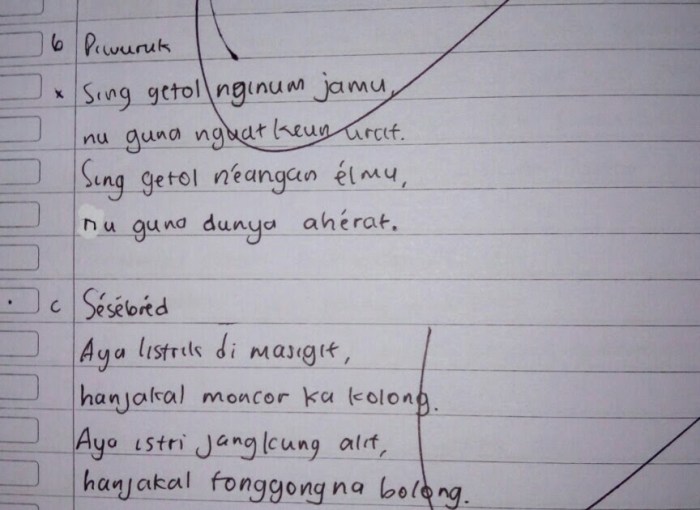 b Piwuruk
x Sing getol nginum jamu,
nu guna nguatkeun urat.
Sing getol néangan élmu,
nu guna dunya ahérat.
c Sésébréd
Aya listrik di masigit,
hanjakal moncor ka kolong.
Aya istri jangkung alit,
hanjakal tonggongna bolong.